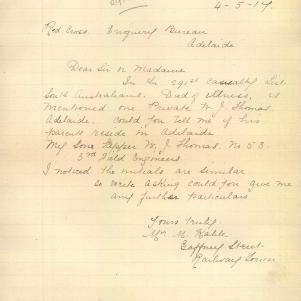 4-5-17.
Red Cross. Enquery Bureau
Adelaide
Dear Sir or Madame
In the 291st causalty List
South Australians. Died of illness, is
mentioned one Private W. J. Thomas.
Adelaide. Could you tell me if his
parents reside in Adelaide
My Sone Sapper W. J. Thomas. No 53
5nd Field Engineers
I noticed the initials are similar
so write asking could you give me
any further particulars
Yours truly.
Mrs M. Kohlk
Gaffney Street.
Railway Town